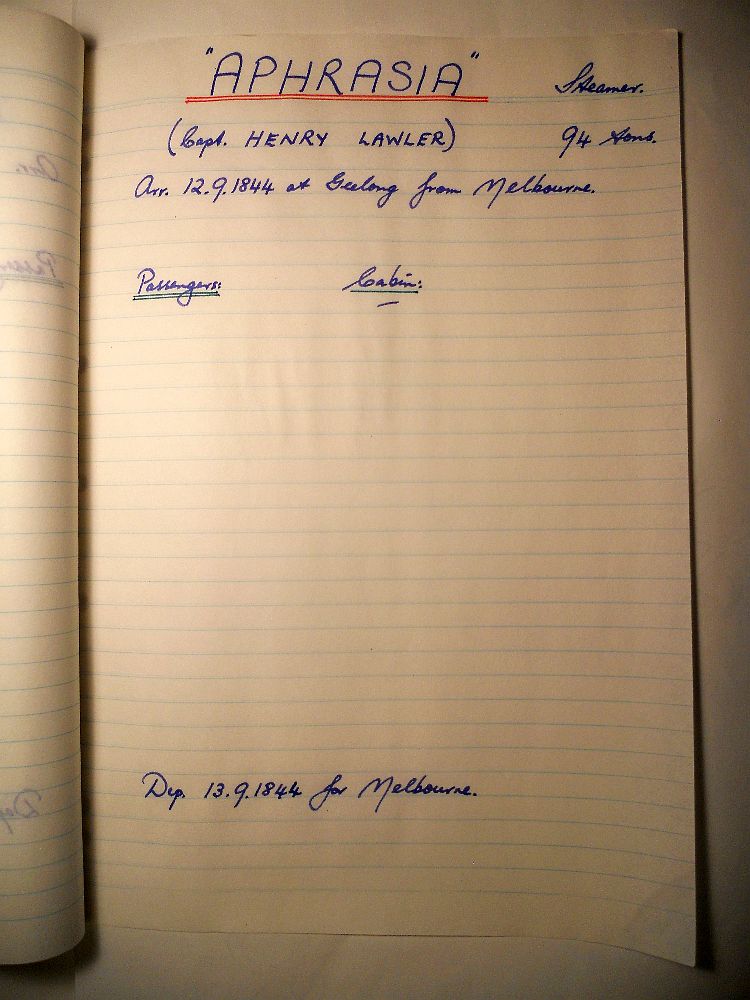 "APHRASIA" Steamer.
(Capt. HENRY LAWLER) 94 tons.
Arr. 12.9.1844 at Geelong from Melbourne.
Passengers: Cabin:
—
Dep. 13.9.1844 for Melbourne.